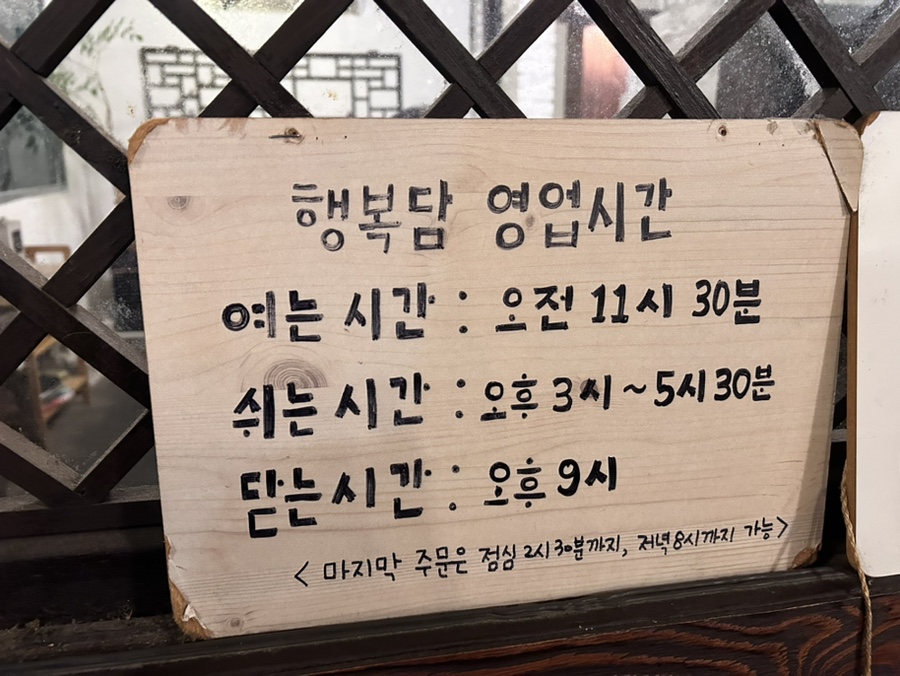 행복담 영업시간
여는 시간 : 오전 11시 30분
쉬는 시간 : 오후 3시 ~ 5시 30분
닫는 시간 : 오후 9시
< 마지막 주문은 점심 2시 30분까지, 저녁 8시까지 가능 >